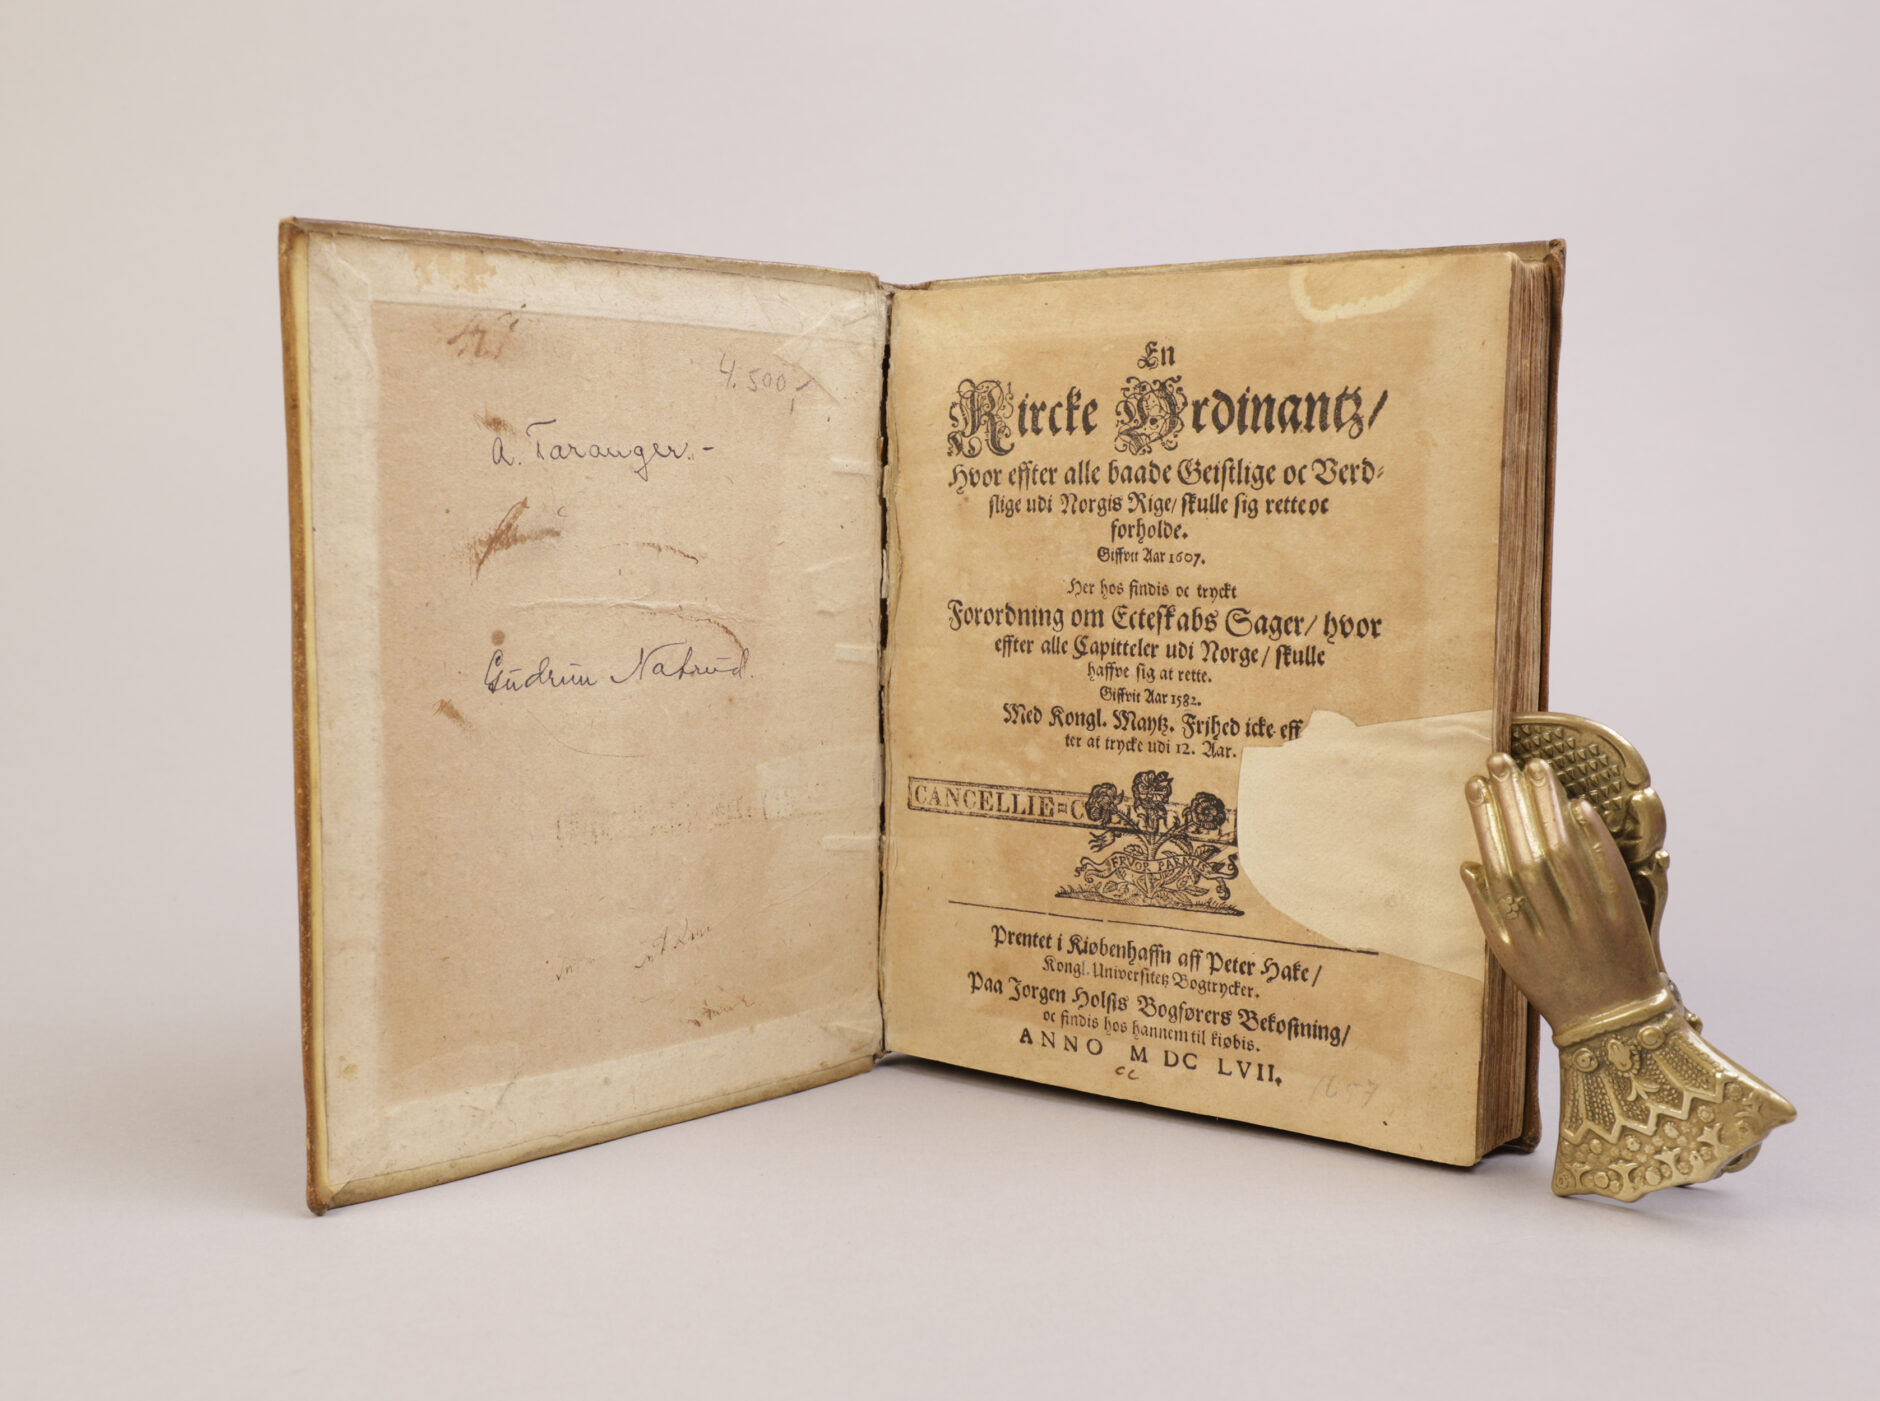 4.500,-
A. Taranger.-
Gudrun Natrud.
En
Kircke Ordinantz/
Hvor effter alle baade Geistlige oc Verd-
slige udi Norgis Rige/ skulle sig rette oc
forholde.
Giffvit Aar 1607.
Her hos findis oc tryckt
Forordning om Ecteskabs Sager/ hvor
effter alle Capitteler udi Norge/ skulle
haffve sig at rette.
Giffvit Aar 1582.
Med Kongl. Maytz. Frjhed icke eff
ter at trycke udi 12. Aar.
CANCELLIE=
FRVOR PARTIS
Prentet i Kiøbenhaffn aff Peter Hake/
Kongl. Universitetz Bogtrycker.
Paa Jorgen Holstis Bogførers Bekostning/
oc findis hos hannem til kiøbis.
ANNO M DC LVII.
cc
1657